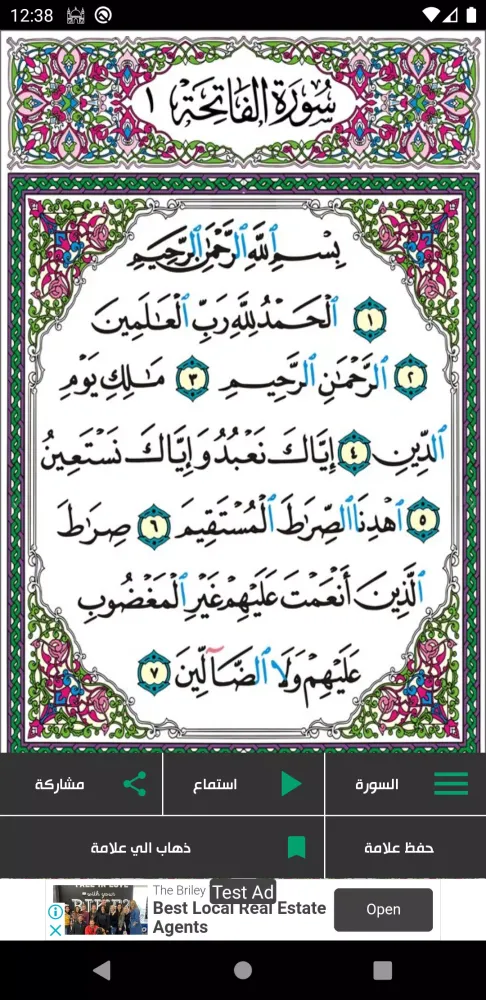 12:38
سُورَةُ الفَاتِحَةِ ١
بِسْمِ ٱللَّهِ ٱلرَّحْمَٰنِ ٱلرَّحِيمِ
١ ٱلْحَمْدُ لِلَّهِ رَبِّ ٱلْعَٰلَمِينَ
٢ ٱلرَّحْمَٰنِ ٱلرَّحِيمِ ٣ مَٰلِكِ يَوْمِ
ٱلدِّينِ ٤ إِيَّاكَ نَعْبُدُ وَإِيَّاكَ نَسْتَعِينُ
٥ ٱهْدِنَا ٱلصِّرَٰطَ ٱلْمُسْتَقِيمَ ٦ صِرَٰطَ
ٱلَّذِينَ أَنْعَمْتَ عَلَيْهِمْ غَيْرِ ٱلْمَغْضُوبِ
عَلَيْهِمْ وَلَا ٱلضَّآلِّينَ ٧
السورة
استماع
مشاركة
حفظ علامة
ذهاب الي علامة
The Briley
Test Ad
Best Local Real Estate
Agents
Open